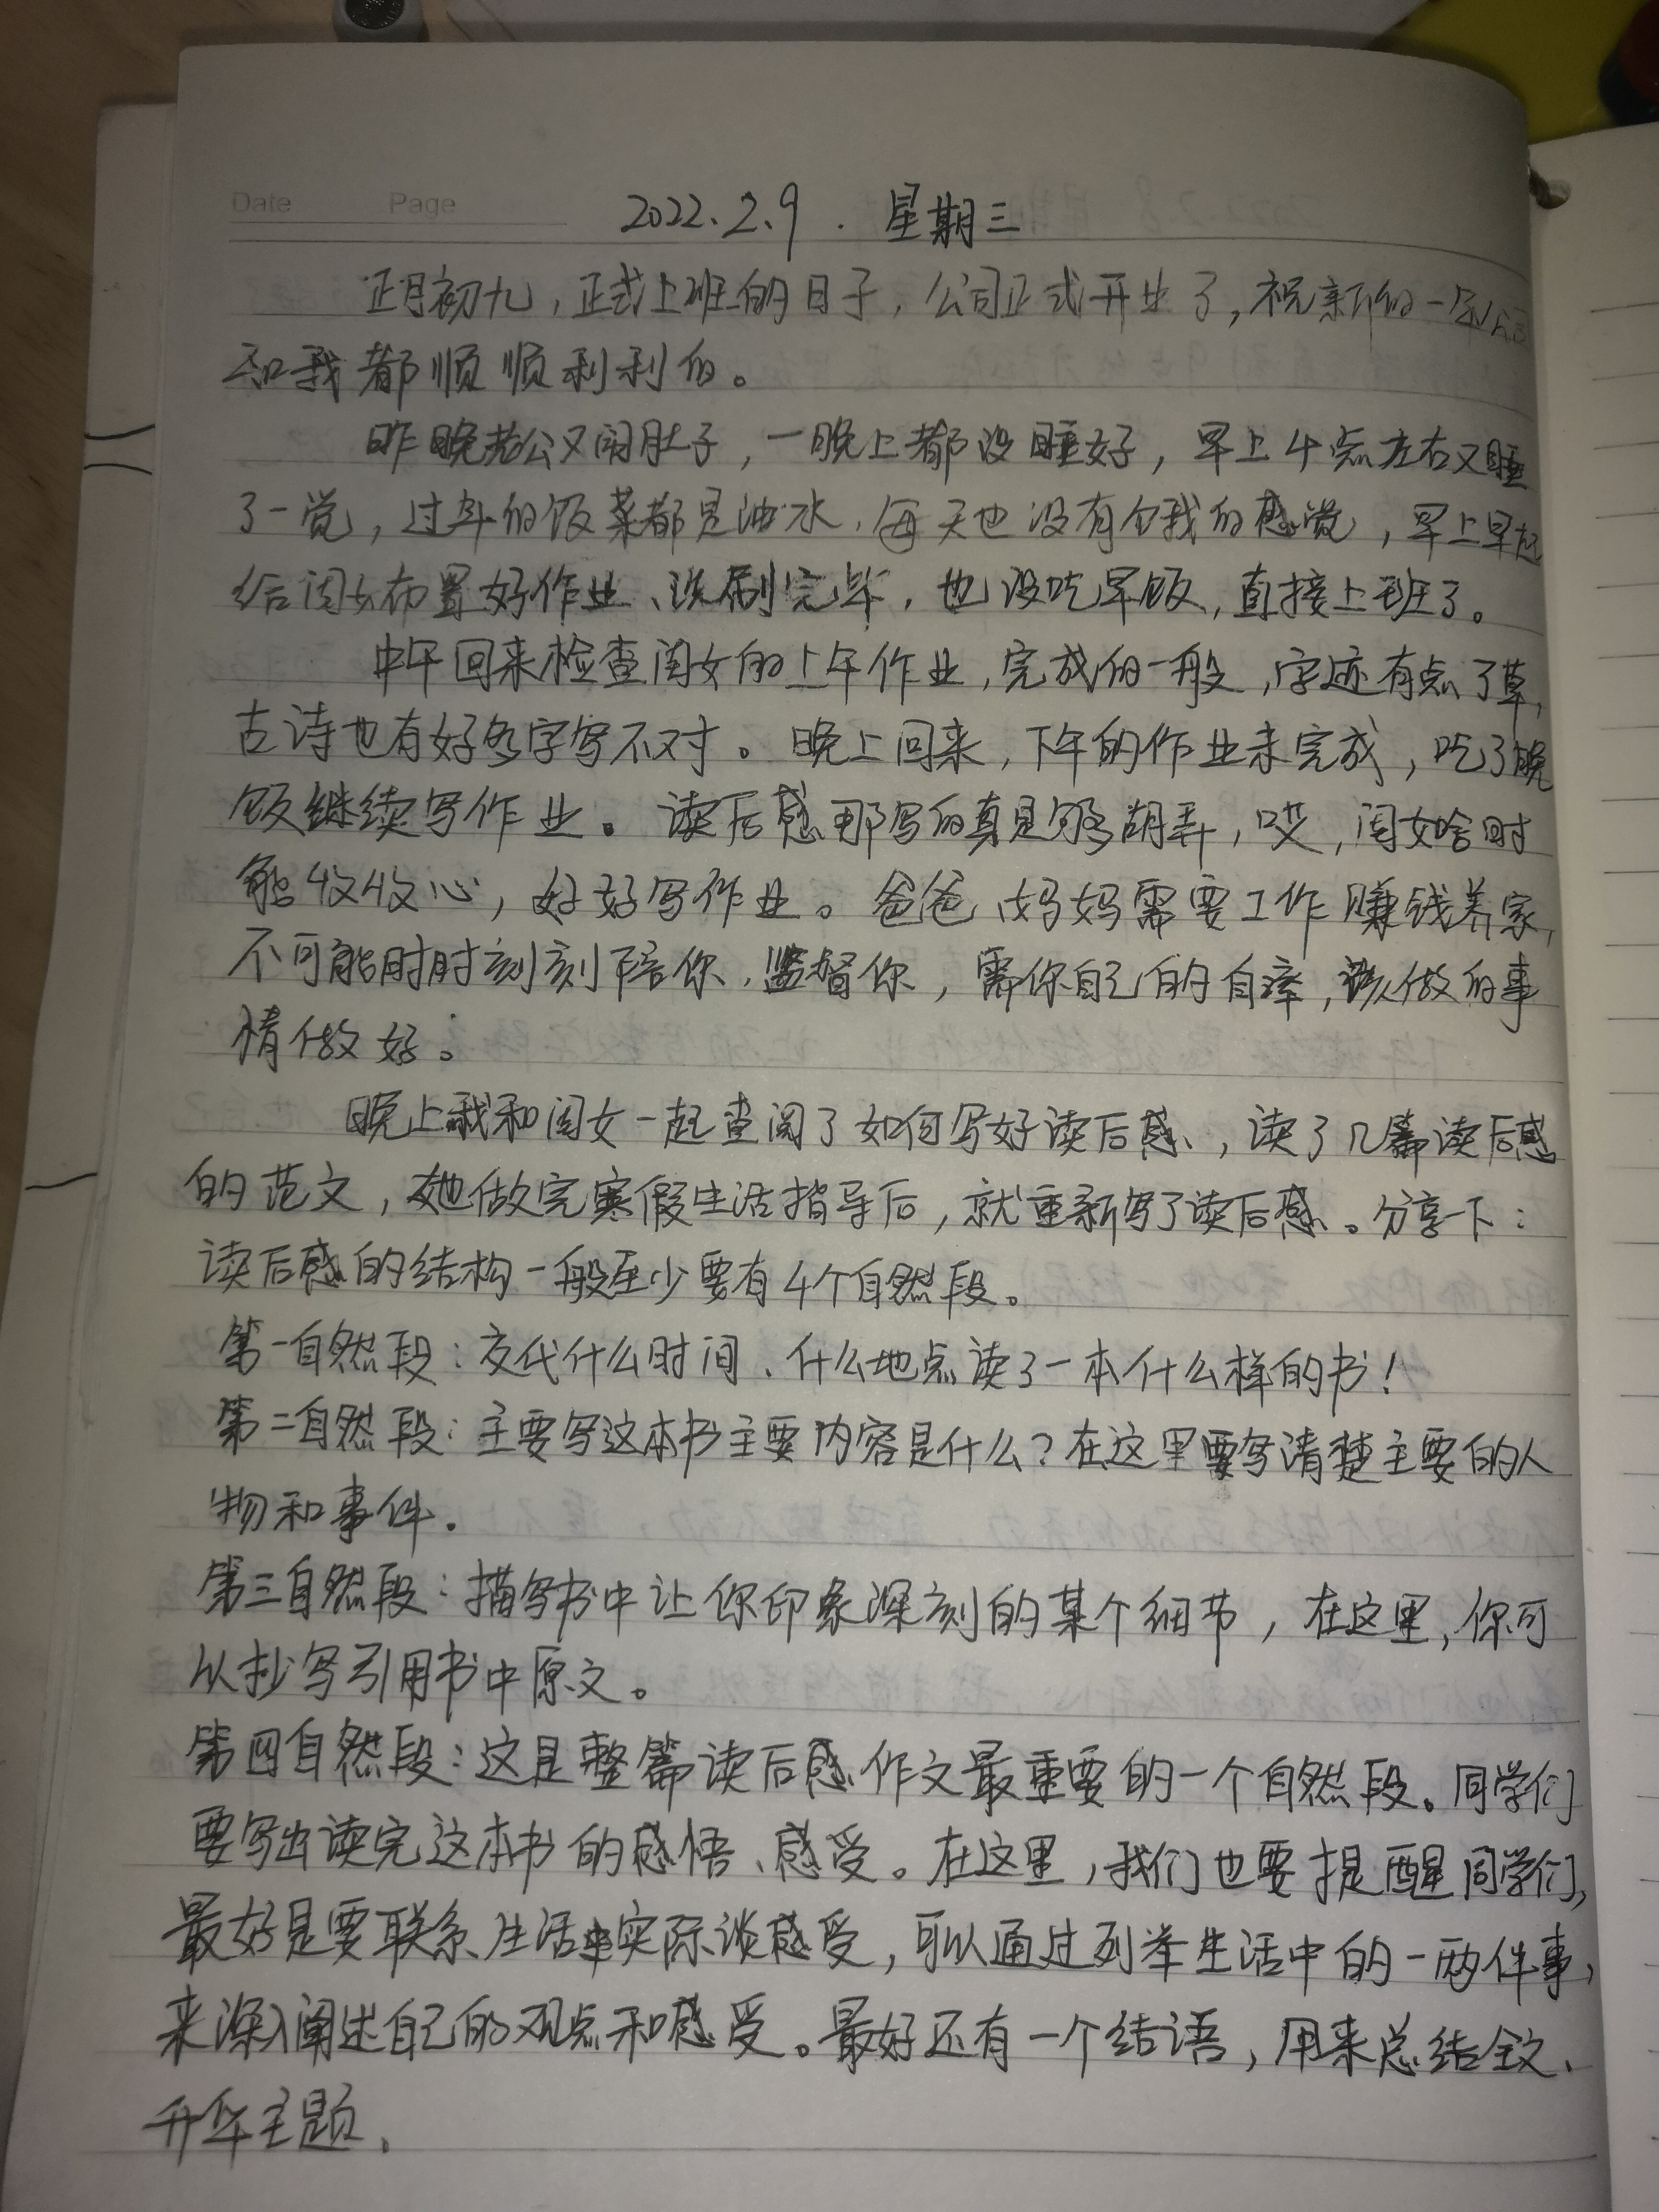 Date Page
2022.2.9. 星期三
正月初九,正式上班的日子,公司正式开业了,祝新的一年公司
和我都顺顺利利的。
昨晚老公又闹肚子,一晚上都没睡好,早上4点左右又睡
了一觉,过年的饭菜都是油水,每天也没有个饿的感觉,早上早起
给闺女布置好作业、洗刷完毕,也没吃早饭,直接上班了。
中午回来检查闺女的上午作业,完成的一般,字迹有点了草,
古诗也有好多字写不对。晚上回来,下午的作业未完成,吃了晚
饭继续写作业。读后感那写的真是够胡弄,哎,闺女啥时
能收收心,好好写作业。爸爸妈妈需要工作赚钱养家,
不可能时时刻刻陪你,监督你,需你自己的自律,该做的事
情做好。
晚上我和闺女一起查阅了如何写好读后感,读了几篇读后感
的范文,她做完寒假生活指导后,就重新写了读后感。分享一下:
读后感的结构一般至少要有4个自然段。
第一自然段:交代什么时间、什么地点读了一本什么样的书!
第二自然段:主要写这本书主要内容是什么?在这里要写清楚主要的人
物和事件.
第三自然段:描写书中让你印象深刻的某个细节,在这里,你可
以抄写引用书中原文。
第四自然段:这是整篇读后感作文最重要的一个自然段。同学们
要写出读完这本书的感悟、感受。在这里,我们也要提醒同学们,
最好是要联系生活中实际谈感受,可以通过列举生活中的一两件事,
来深入阐述自己的观点和感受。最好还有一个结语,用来总结全文、
升华主题.